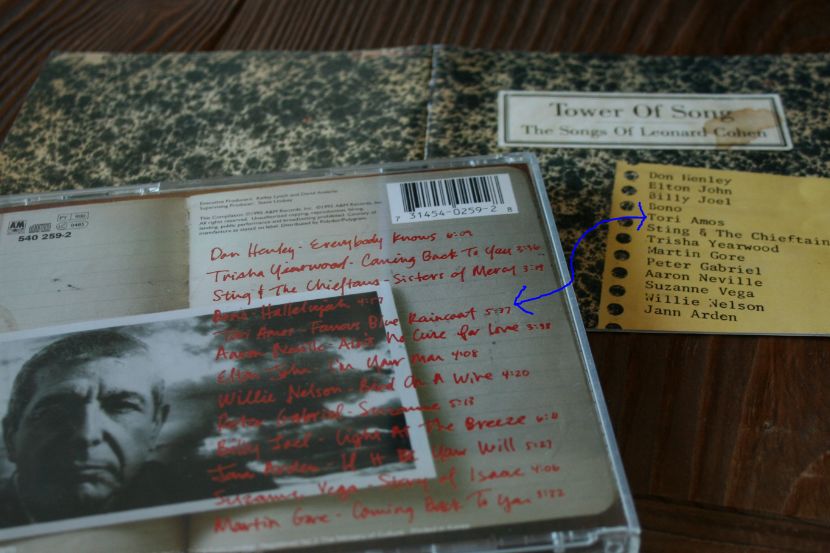 Tower Of Song
The Songs Of Leonard Cohen
Don Henley
Elton John
Billy Joel
Bono
Tori Amos
Sting & The Chieftain
Trisha Yearwood
Martin Gore
Peter Gabriel
Aaron Neville
Suzanne Vega
Willie Nelson
Jann Arden
Executive Producers: Kelley Lynch and David Anderle
Supervising Producer: Steve Lindsey
540 259-2
7 31454-0259-2 8
Don Henley - Everybody Knows 6:09
Trisha Yearwood - Coming Back To You 3:36
Sting & The Chieftans Sisters of Mercy
Bono - Hallelujah 4:17
Tori Amos - Famous Blue Raincoat 5:37
Aaron Neville - Ain't No Cure for Love 3:58
Elton John - I'm Your Man 4:08
Willie Nelson - Bird On A Wire 4:20
Peter Gabriel - Suzanne 5:13
Billy Joel - Light As The Breeze
Jann Arden - If It Be Your Will 5:27
Suzanne Vega - Story of Isaac 4:06
Martin Gore - Coming Back To You 3:22